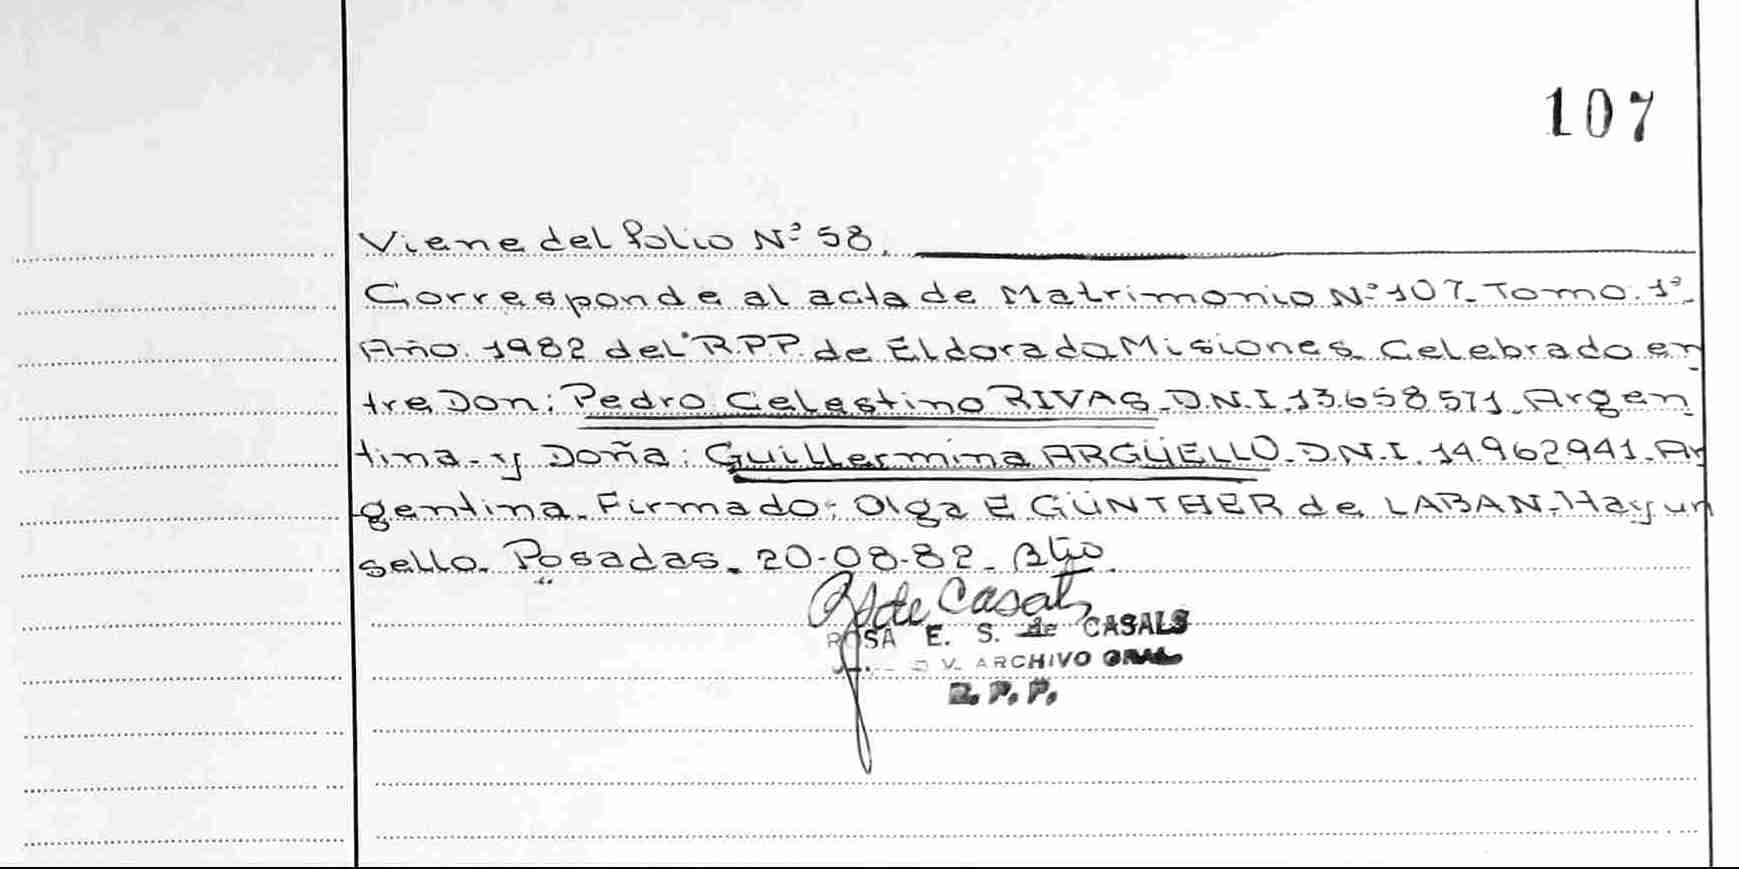 107
Viene del folio Nº 58.
Corresponde al acta de Matrimonio Nº 107. Tomo. 1º.
Año. 1982 del R.P.P. de Eldorado Misiones. Celebrado en
tre Don: Pedro Celestino RIVAS. D.N.I. 13.658.571. Argen
tina. y Doña: Guillermina ARGÜELLO. D.N.I. 14.962941. Ar
gentina. Firmado: Olga E. GÜNTHER de LABAN. Hay un
sello. Posadas. 20-08-82.
de Casals
ROSA E. S. de CASALS
ARCHIVO GRAL
R. P. P.